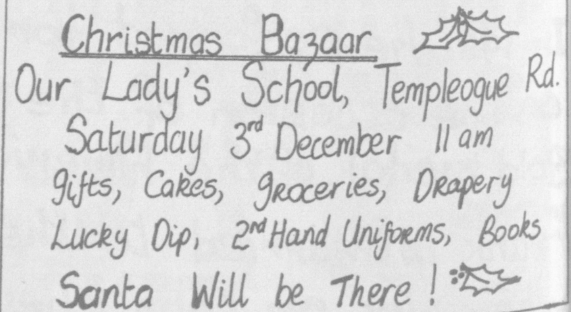 Christmas Bazaar
Our Lady's School, Templeogue Rd.
Saturday 3rd December 11 am
Gifts, Cakes, Groceries, Drapery
Lucky Dip, 2nd Hand Uniforms, Books
Santa Will be There!